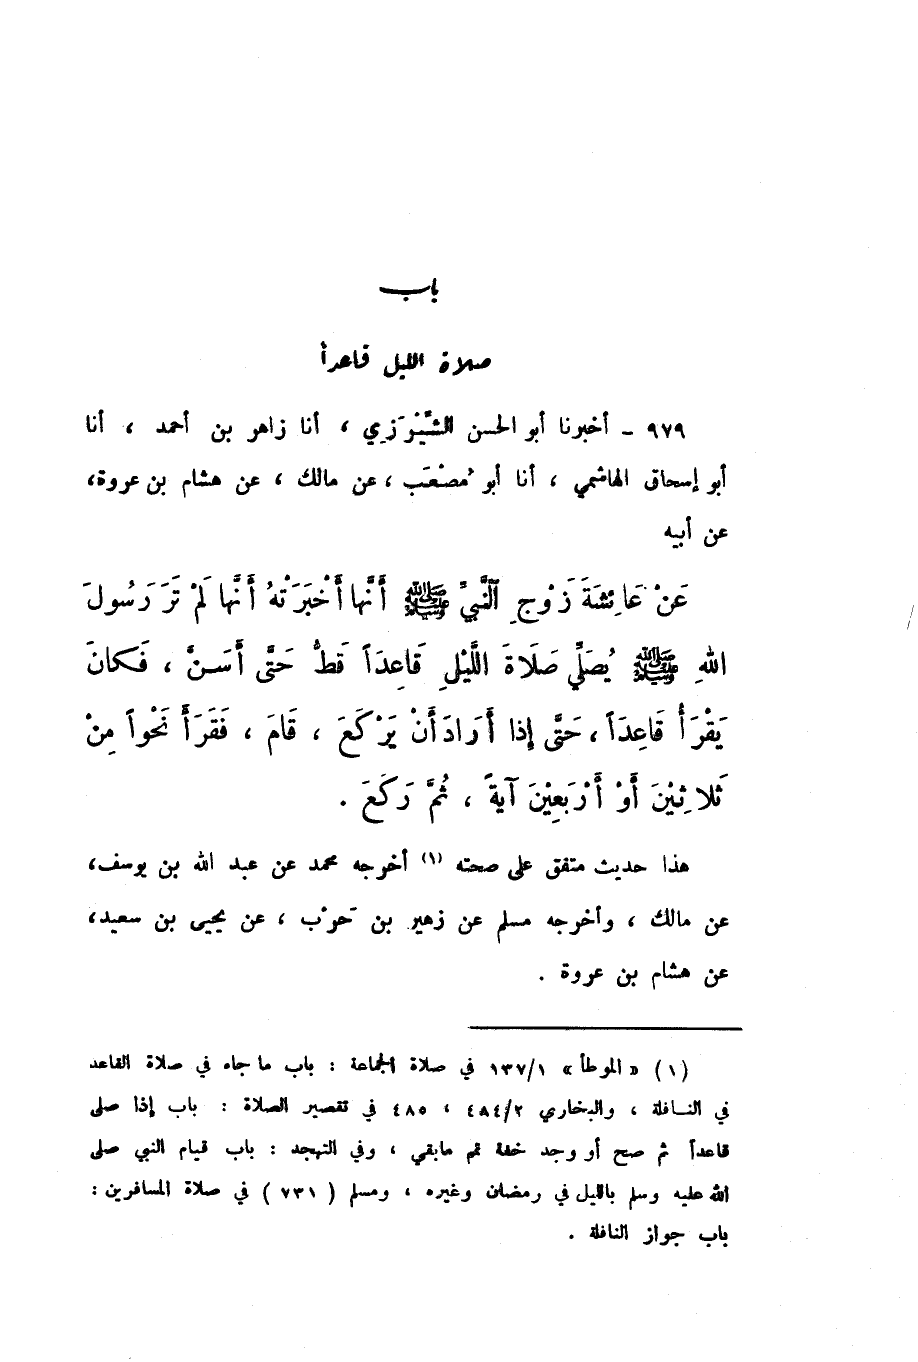 باب
صلاة الليل قاعداً
٩٧٩ - أخبرنا أبو الحسن الشِّيْرَزي ، أنا زاهر بن أحمد ، أنا
أبو إسحاق الهاشمي ، أنا أبو مُصْعَب ، عن مالك ، عن هشام بن عروة،
عن أبيه
عَنْ عَائِشَةَ زَوْجِ النَّبِيِّ ﷺ أَنَّها أَخْبَرَتْهُ أَنَّها لَمْ تَرَ رَسُولَ
اللهِ ﷺ يُصَلِّي صَلَاةَ اللَّيْلِ قَاعِدَاً قَطُّ حَتَّى أَسَنَّ ، فَكانَ
يَقْرَأُ قَاعِدَاً ، حَتَّى إِذا أَرَادَ أَنْ يَرْكَعَ ، قَامَ ، فَقَرَأَ نَحْواً مِنْ
ثَلاثِيْنَ أَوْ أَرْبَعِيْنَ آيَةً ، ثُمَّ رَكَعَ .
هذا حديث متفق على صحته (١) أخرجه محمد عن عبد الله بن يوسف،
عن مالك ، وأخرجه مسلم عن زهير بن حَرْب ، عن يحيى بن سعيد،
عن هشام بن عروة .
(١) « الموطأ » ١٣٧/١ في صلاة الجماعة : باب ما جاء في صلاة القاعد
في النافلة ، والبخاري ٤٨٤/٢ ، ٤٨٥ في تقصير الصلاة : باب إذا صلى
قاعداً ثم صح أو وجد خفة تمم مابقي ، وفي التهجد : باب قيام النبي صلى
الله عليه وسلم بالليل في رمضان وغيره ، ومسلم ( ٧٣١ ) في صلاة المسافرين :
باب جواز النافلة .